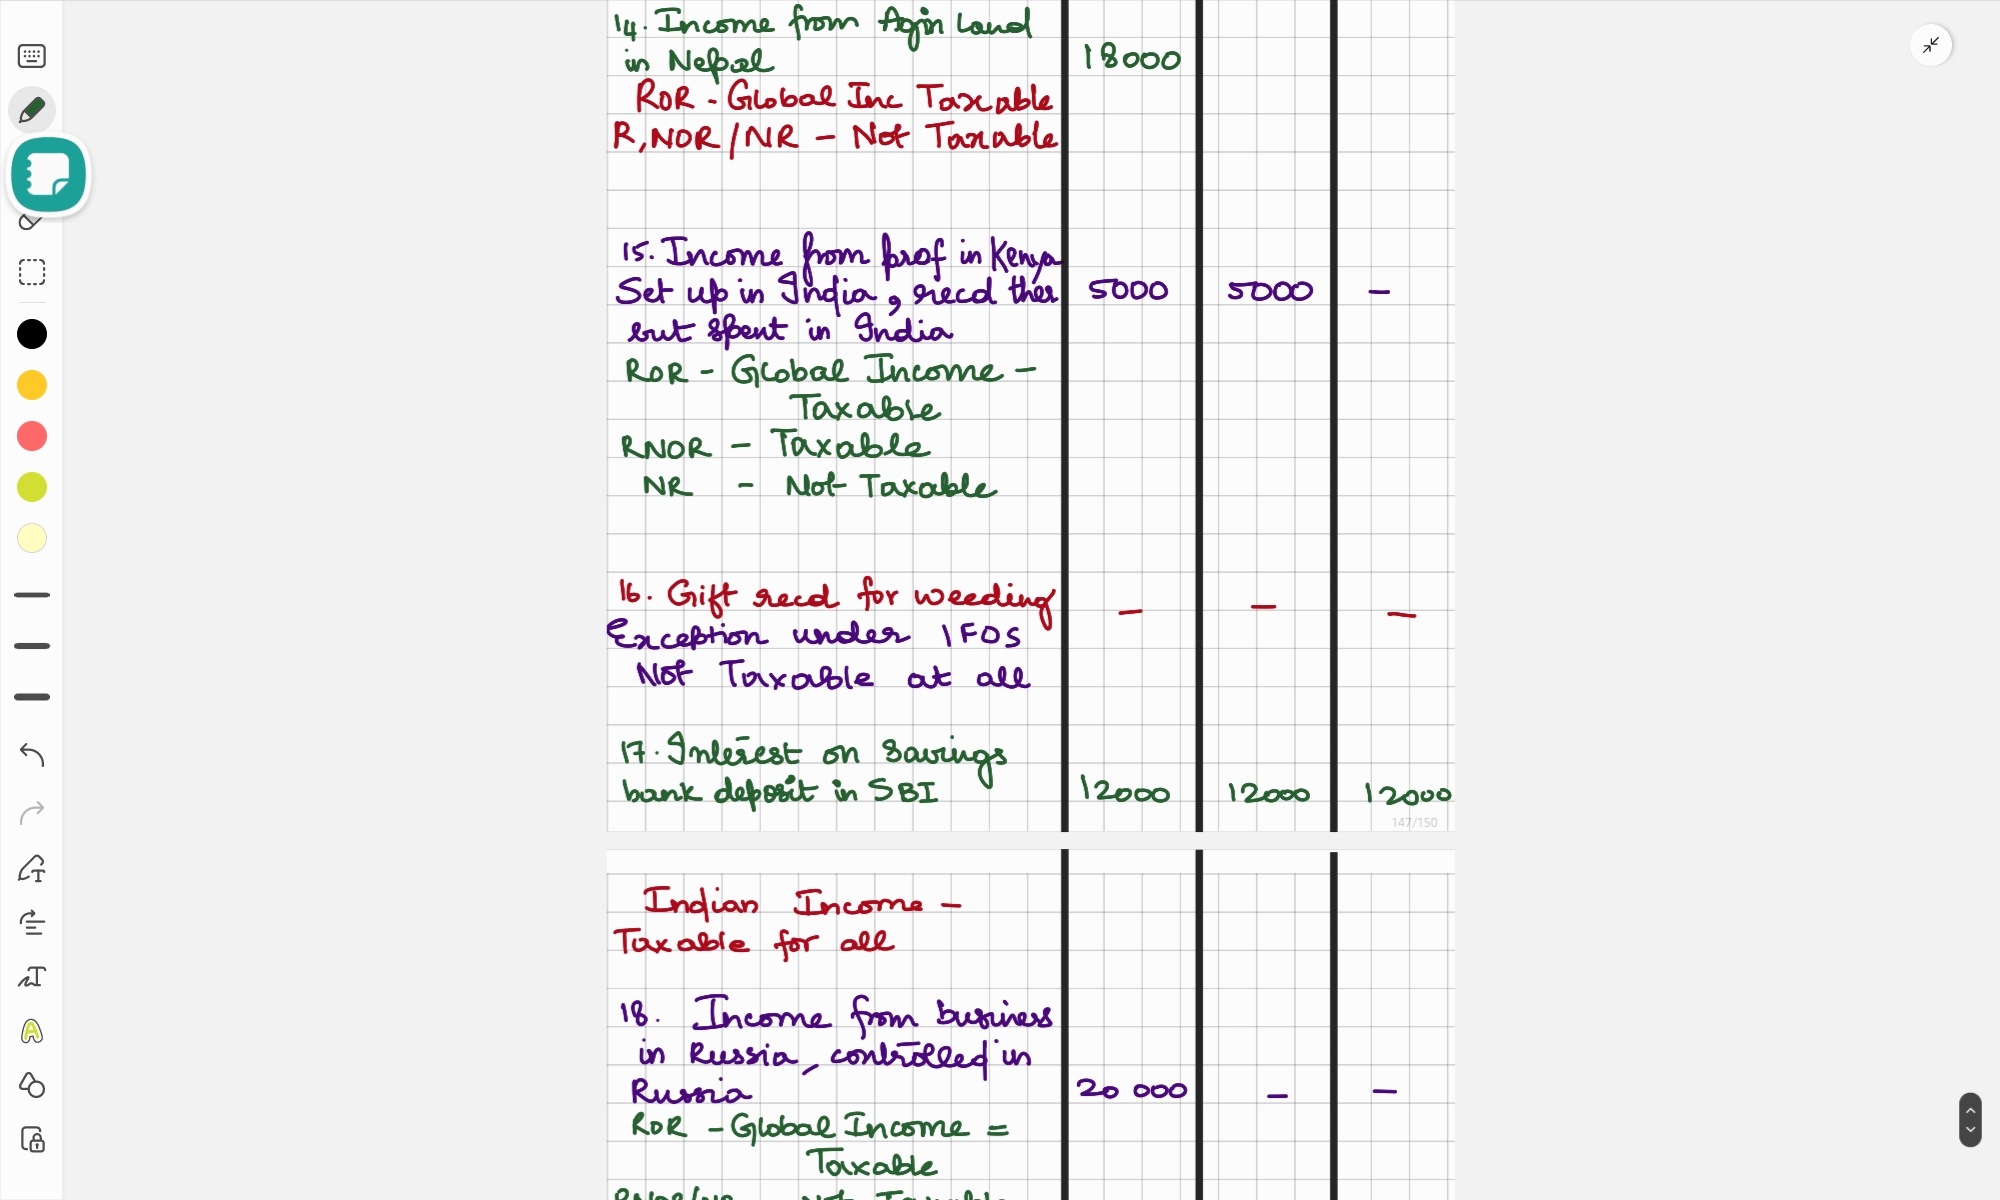 14. Income from Agin Land
in Nepal 18000
ROR - Global Inc Taxable
R,NOR/NR - Not Taxable
15. Income from prof in Kenya
Set up in India, recd ther 5000 5000 -
but spent in India
ROR - Global Income -
Taxable
RNOR - Taxable
NR - Not Taxable
16. Gift recd for weeding - - -
Exception under IFOS
Not Taxable at all
17. Interest on Savings
bank deposit in SBI 12000 12000 12000
147/150
Indian Income -
Taxable for all
18. Income from business
in Russia, controlled in
Russia 20 000 - -
ROR - Global Income =
Taxable
RNOR/NR - Not Taxable